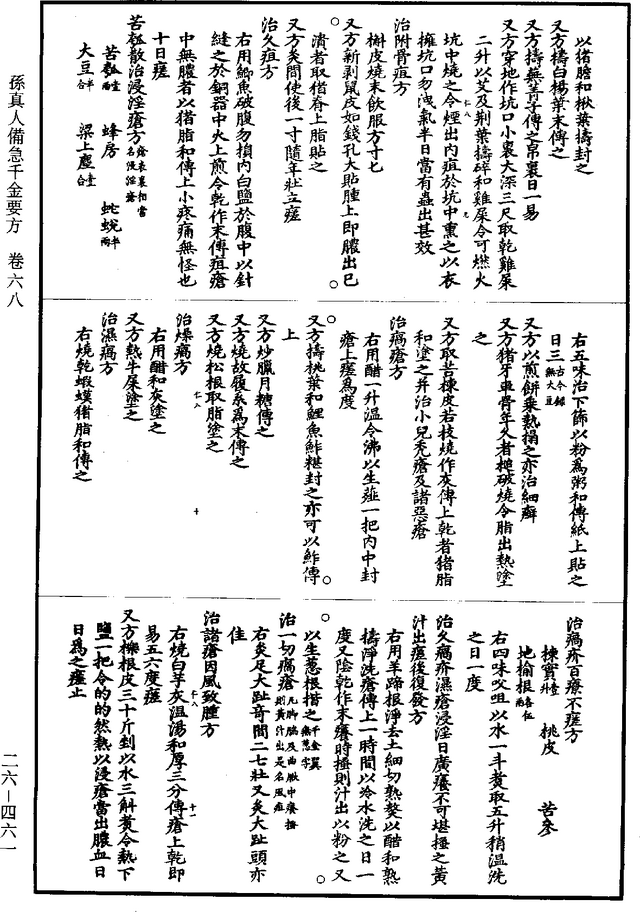 以猪膽和楸葉擣封之
又方擣白楊葉末傅之
又方擣蕪菁子傅之帛裹日一易
又方穿地作坑口小裏大深三尺取乾雞屎
二升以艾及荆葉擣碎和雞屎令可燃火
坑中燒之令烟出內疽於坑中熏之以衣
擁坑口勿洩氣半日當有蟲出甚效
治附骨疽方
槲皮燒末飲服方寸七
又方新剥鼠皮如錢孔大貼腫上即膿出已
潰者取猪脊上脂貼之
又方灸間使後一寸隨年壯立瘥
治久疽方
右用鯽魚破腹勿損內白鹽於腹中以針
縫之於銅器中火上煎令乾作末傅疽瘡
中無膿者以猪脂和傅上小疼痛無怪也
十日瘥
苦瓠散治浸淫瘡方瘡表裏相當名浸淫瘡
苦瓠壹兩 蜂房 蛇蛻半兩
大豆半合 梁上塵壹合
右五味治下篩以粉為粥和傅紙上貼之
日三古今錄無大豆
又方以煎餅乘熱搨之亦治細癬
又方猪牙車骨年久者槌破燒令脂出熱塗
之
又方取苦楝皮若枝燒作灰傅上乾者猪脂
和塗之并治小兒禿瘡及諸惡瘡
治瘑瘡方
右用醋一升温令沸以生薤一把內中封
瘡上瘥為度
又方擣桃葉和鯉魚鮓糝封之亦可以鮓傅
上
又方炒臘月糖傅之
又方燒故履系為末傅之
又方燒松根取脂塗之
治燥瘑方
右用醋和灰塗之
又方熱牛屎塗之
治濕瘑方
右燒乾蝦蟆猪脂和傅之
治瘑疥百療不瘥方
楝實壹升 桃皮 苦參
地榆根各伍兩
右四味㕮咀以水一斗煮取五升稍温洗
之日一度
治久瘑疥濕瘡浸淫日廣癢不可堪搔之黄
汁出瘥後復發方
右用羊蹄根淨去土細切熟熬以醋和熟
擣淨洗瘡傅上一時間以冷水洗之日一
度又陰乾作末癢時搔則汁出以粉之又
以生葱根揩之千金翼無葱字
治一切瘑瘡凡脚腨及曲䐐中癢搔則黄汁出是名風疽
右灸足大趾奇間二七壯又灸大趾頭亦
佳
治諸瘡因風致腫方
右燒白芋灰温湯和厚三分傅瘡上乾即
易五六度瘥
又方櫟根皮三十斤剉以水三斛煮令熱下
鹽一把令的的然熱以浸瘡當出膿血日
日為之瘥止
孫真人備急千金要方 卷六八
二六—四六一